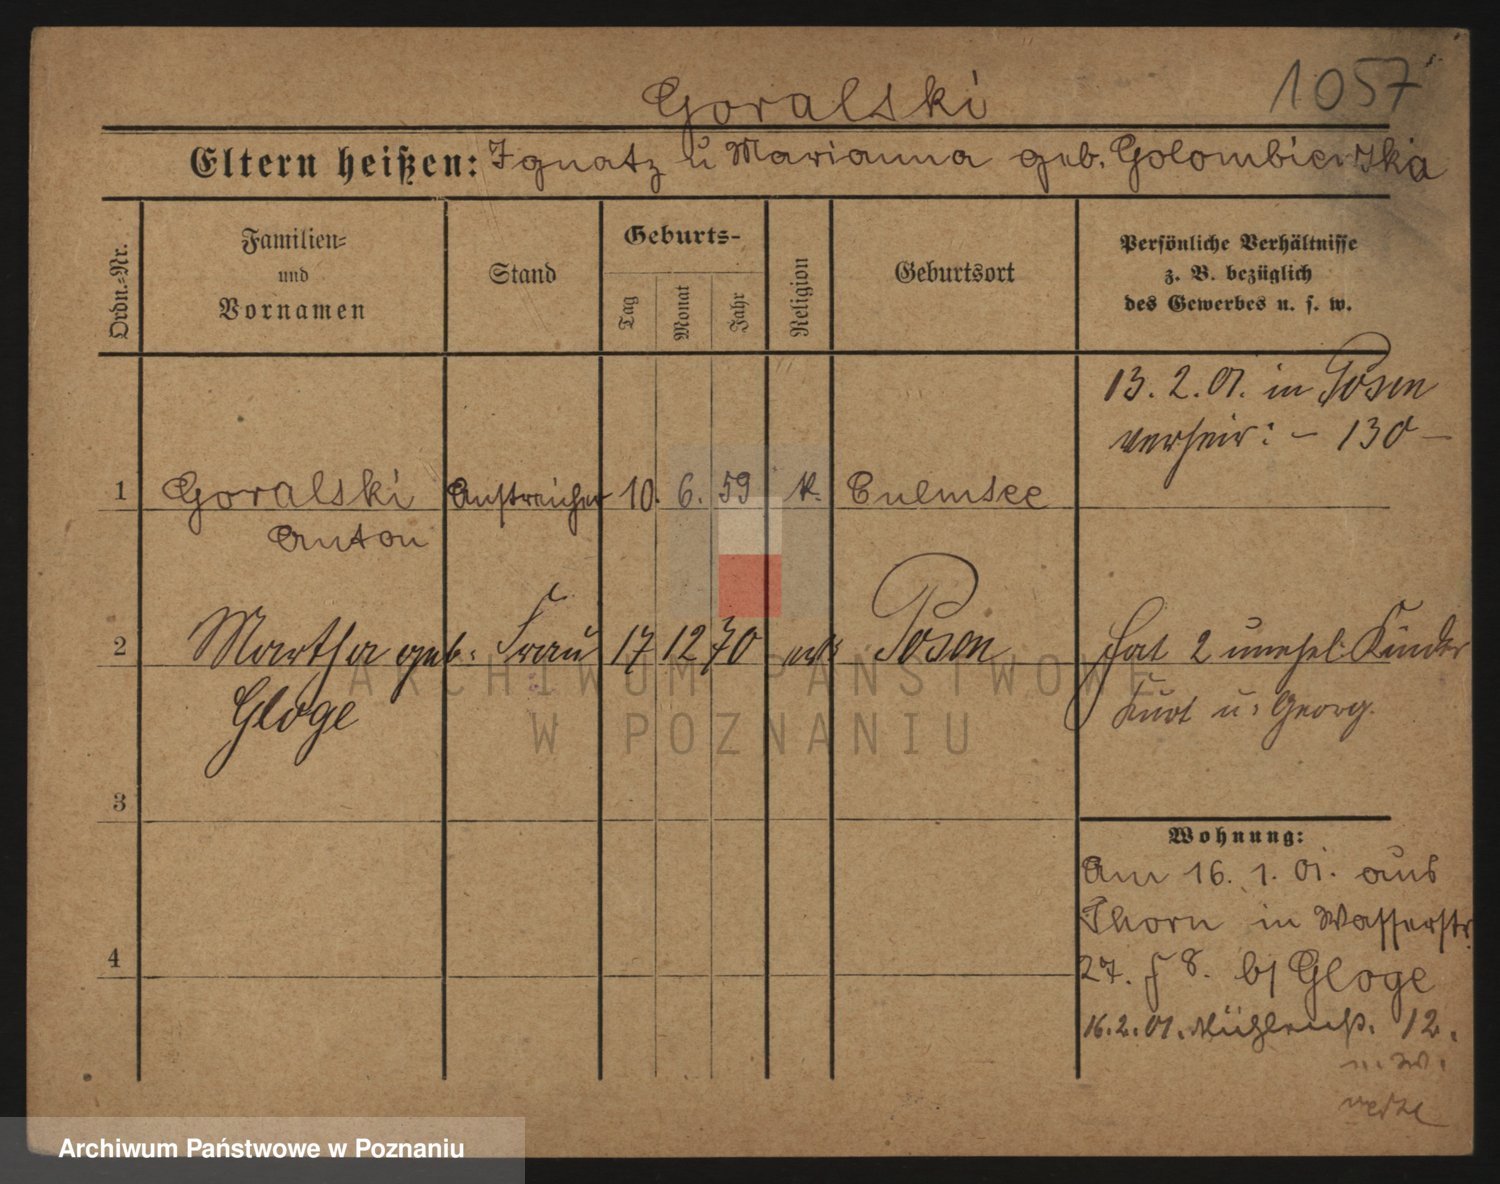 1057
Goralski
Eltern heißen: Ignatz u Marianna geb. Golombiewska
Ordn.-Nr.
Familien-
und
Vornamen
Stand
Geburts-
Tag
Monat
Jahr
Religion
Geburtsort
Persönliche Verhältnisse
z. B. bezüglich
des Gewerbes u. s. w.
13. 2. 01. in Posen
verheir: – 130 –
1 Goralski Anstreicher 10. 6. 59 k. Culmsee
Anton
2 Martha geb. Frau 17 12 70 Posen hat 2 unehel. Kinder
Gloge
Kurt u. Georg.
3
4
Wohnung:
Am 16. 1. 01. aus
Thorn in Wasserstr.
27. 8. b/ Gloge
16. 2. 01. 12.
ARCHIWUM PAŃSTWOWE
W POZNANIU
Archiwum Państwowe w Poznaniu